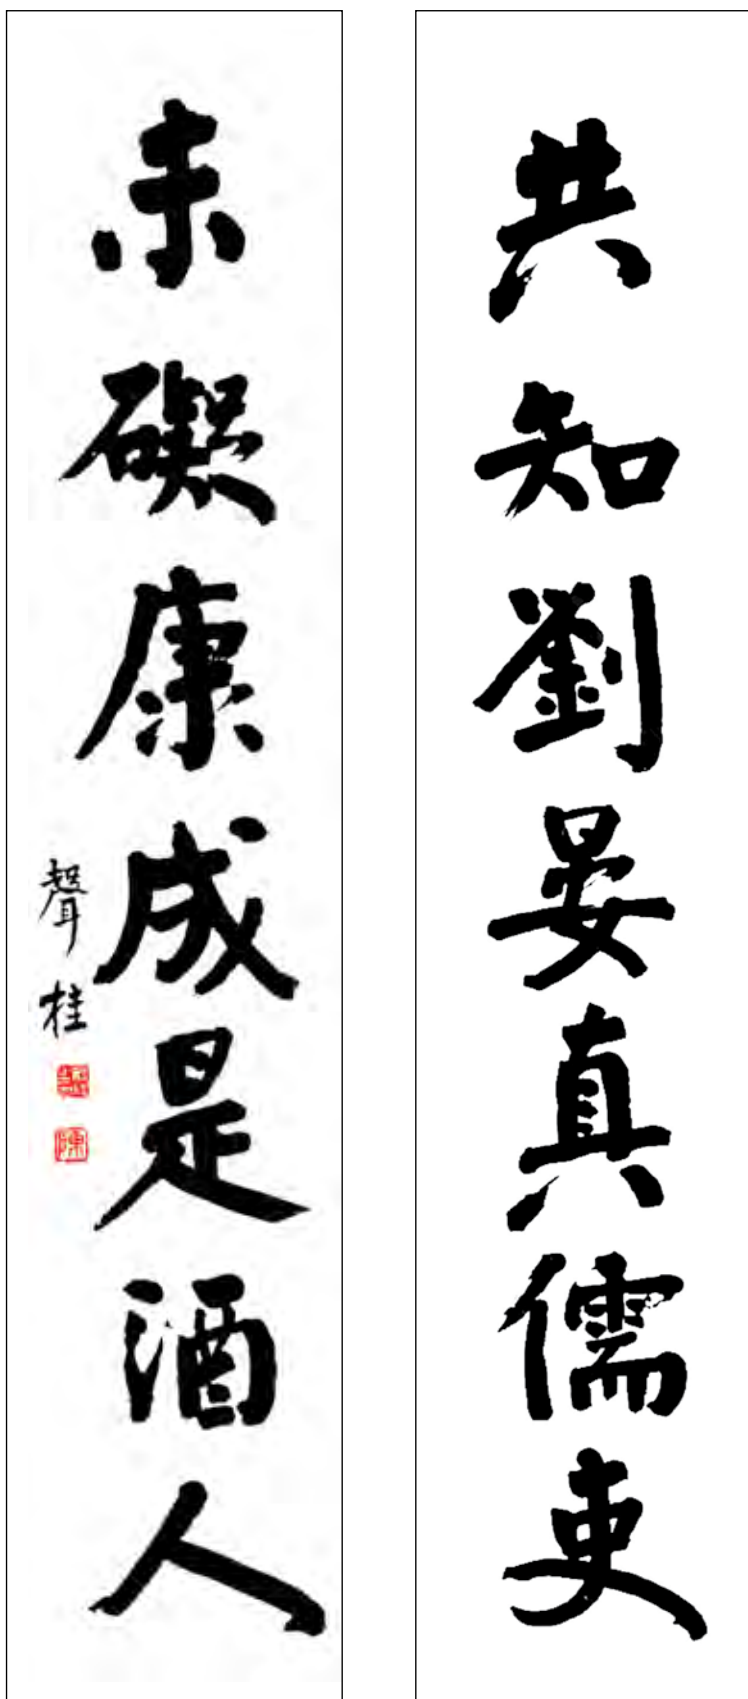 共知劉晏真儒吏
未礙康成是酒人
聲桂